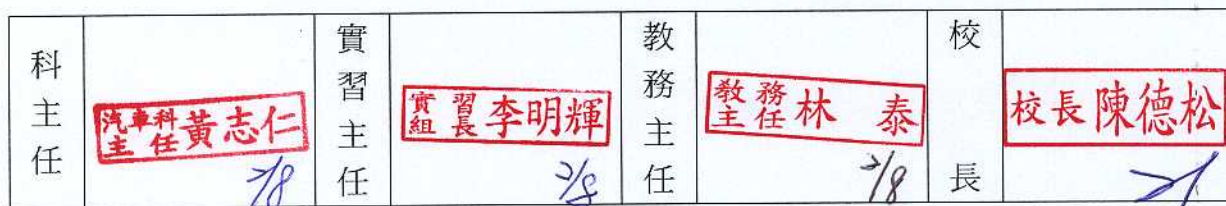 科主任
汽車科主任 黃志仁
2/8
實習主任
實習組長 李明輝
2/8
教務主任
教務主任 林泰
2/8
校長
校長 陳德松